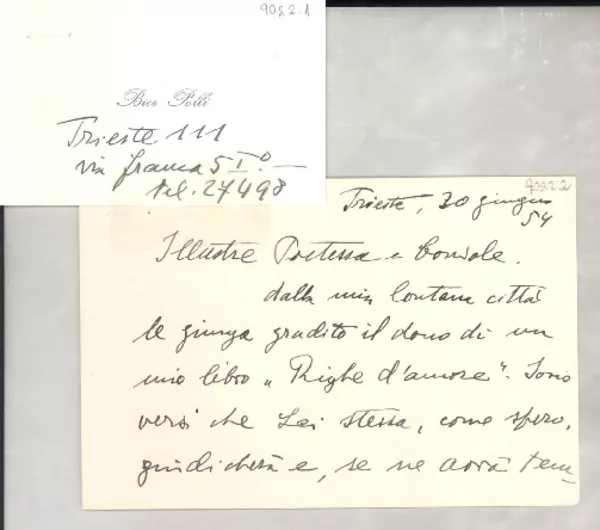 9022.1
Bice Polli
Trieste 111
via franca 5 I.º —
tel. 27498
9022 2
Trieste, 20 giugno
54
Illustre Poetessa e
dalla mia lontana città
le giunga gradito il dono di un
mio libro „Righe d'amore". Sono
versi che Lei stessa, come spero,
giudicherà e, se ne avrà tem=